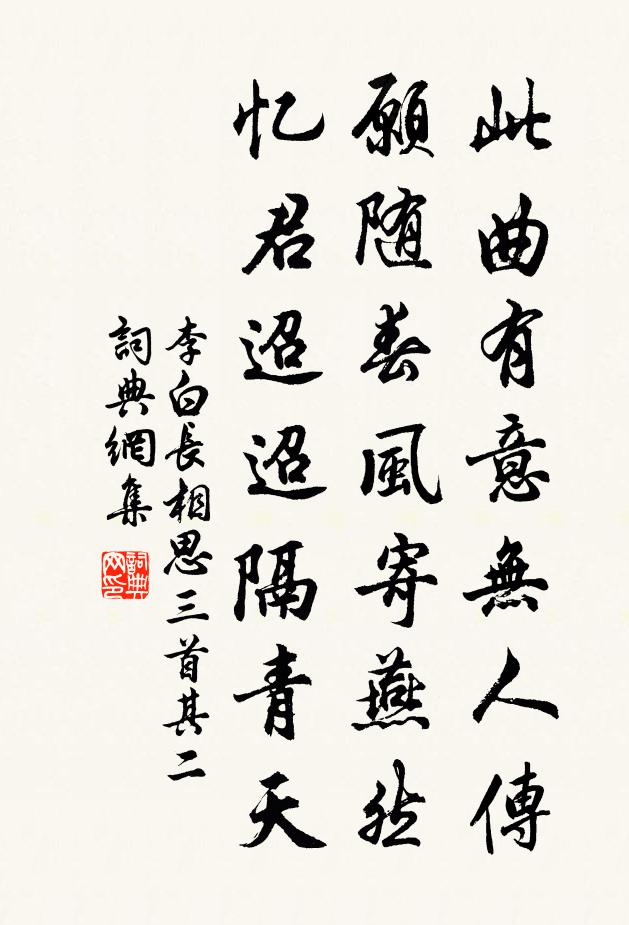 此曲有意無人傳
願随春風寄燕然
忆君迢迢隔青天
李白長相思三首其二
詞典網集
詞典网印